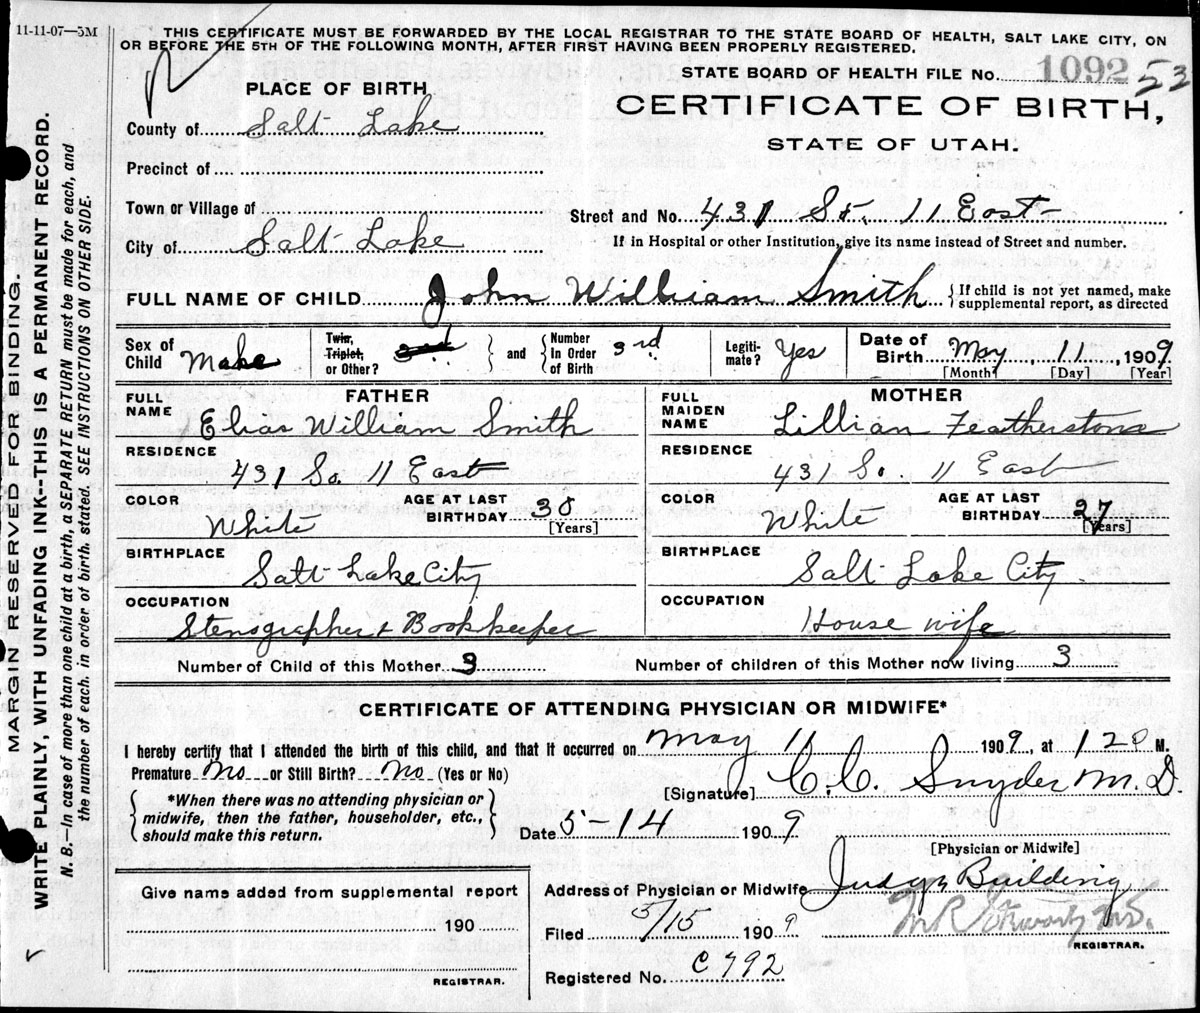 11-11-07—5M
THIS CERTIFICATE MUST BE FORWARDED BY THE LOCAL REGISTRAR TO THE STATE BOARD OF HEALTH, SALT LAKE CITY, ON
OR BEFORE THE 5TH OF THE FOLLOWING MONTH, AFTER FIRST HAVING BEEN PROPERLY REGISTERED.
STATE BOARD OF HEALTH FILE No. 1092 53
PLACE OF BIRTH
CERTIFICATE OF BIRTH,
STATE OF UTAH.
County of Salt Lake
Precinct of
Town or Village of
Street and No. 431 So. 11 East
City of Salt Lake
If in Hospital or other Institution, give its name instead of Street and number.
FULL NAME OF CHILD John William Smith { If child is not yet named, make
supplemental report, as directed
Sex of Child Male
Twin, Triplet, or Other? } and { Number In Order of Birth 3rd
Legiti-mate? Yes
Date of Birth May 11, 1909
[Month] [Day] [Year]
FATHER
FULL NAME Elias William Smith
RESIDENCE 431 So. 11 East
COLOR White
AGE AT LAST BIRTHDAY 30 [Years]
BIRTHPLACE Salt Lake City
OCCUPATION Stenographer & Bookkeeper
MOTHER
FULL MAIDEN NAME Lillian Featherstone
RESIDENCE 431 So. 11 East
COLOR White
AGE AT LAST BIRTHDAY 27 [Years]
BIRTHPLACE Salt Lake City
OCCUPATION House wife
Number of Child of this Mother 3 Number of children of this Mother now living 3
CERTIFICATE OF ATTENDING PHYSICIAN OR MIDWIFE*
I hereby certify that I attended the birth of this child, and that it occurred on May 11 1909, at 120 M.
Premature No or Still Birth? No (Yes or No)
[Signature] C.C. Snyder M.D.
{ *When there was no attending physician or
midwife, then the father, householder, etc.,
should make this return. }
Date 5-14 1909
[Physician or Midwife]
Give name added from supplemental report
190
REGISTRAR.
Address of Physician or Midwife Judge Building
Filed 5/15 1909
REGISTRAR.
Registered No. C 792
MARGIN RESERVED FOR BINDING.
WRITE PLAINLY, WITH UNFADING INK--THIS IS A PERMANENT RECORD.
N. B.—In case of more than one child at a birth, a SEPARATE RETURN must be made for each, and
the number of each, in order of birth, stated. SEE INSTRUCTIONS ON OTHER SIDE.